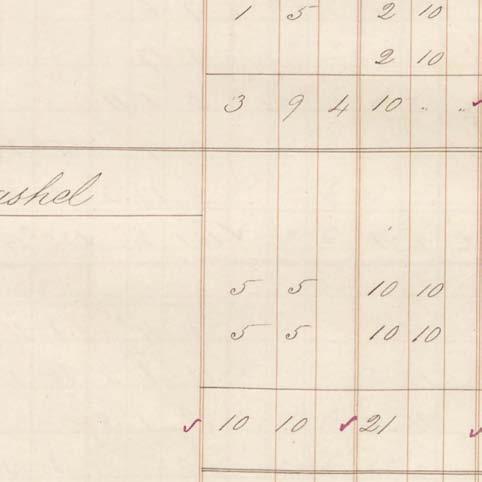 1 5 2 10
2 10
3 9 4 10 " "
ashel
5 5 10 10
5 5 10 10
10 10 21